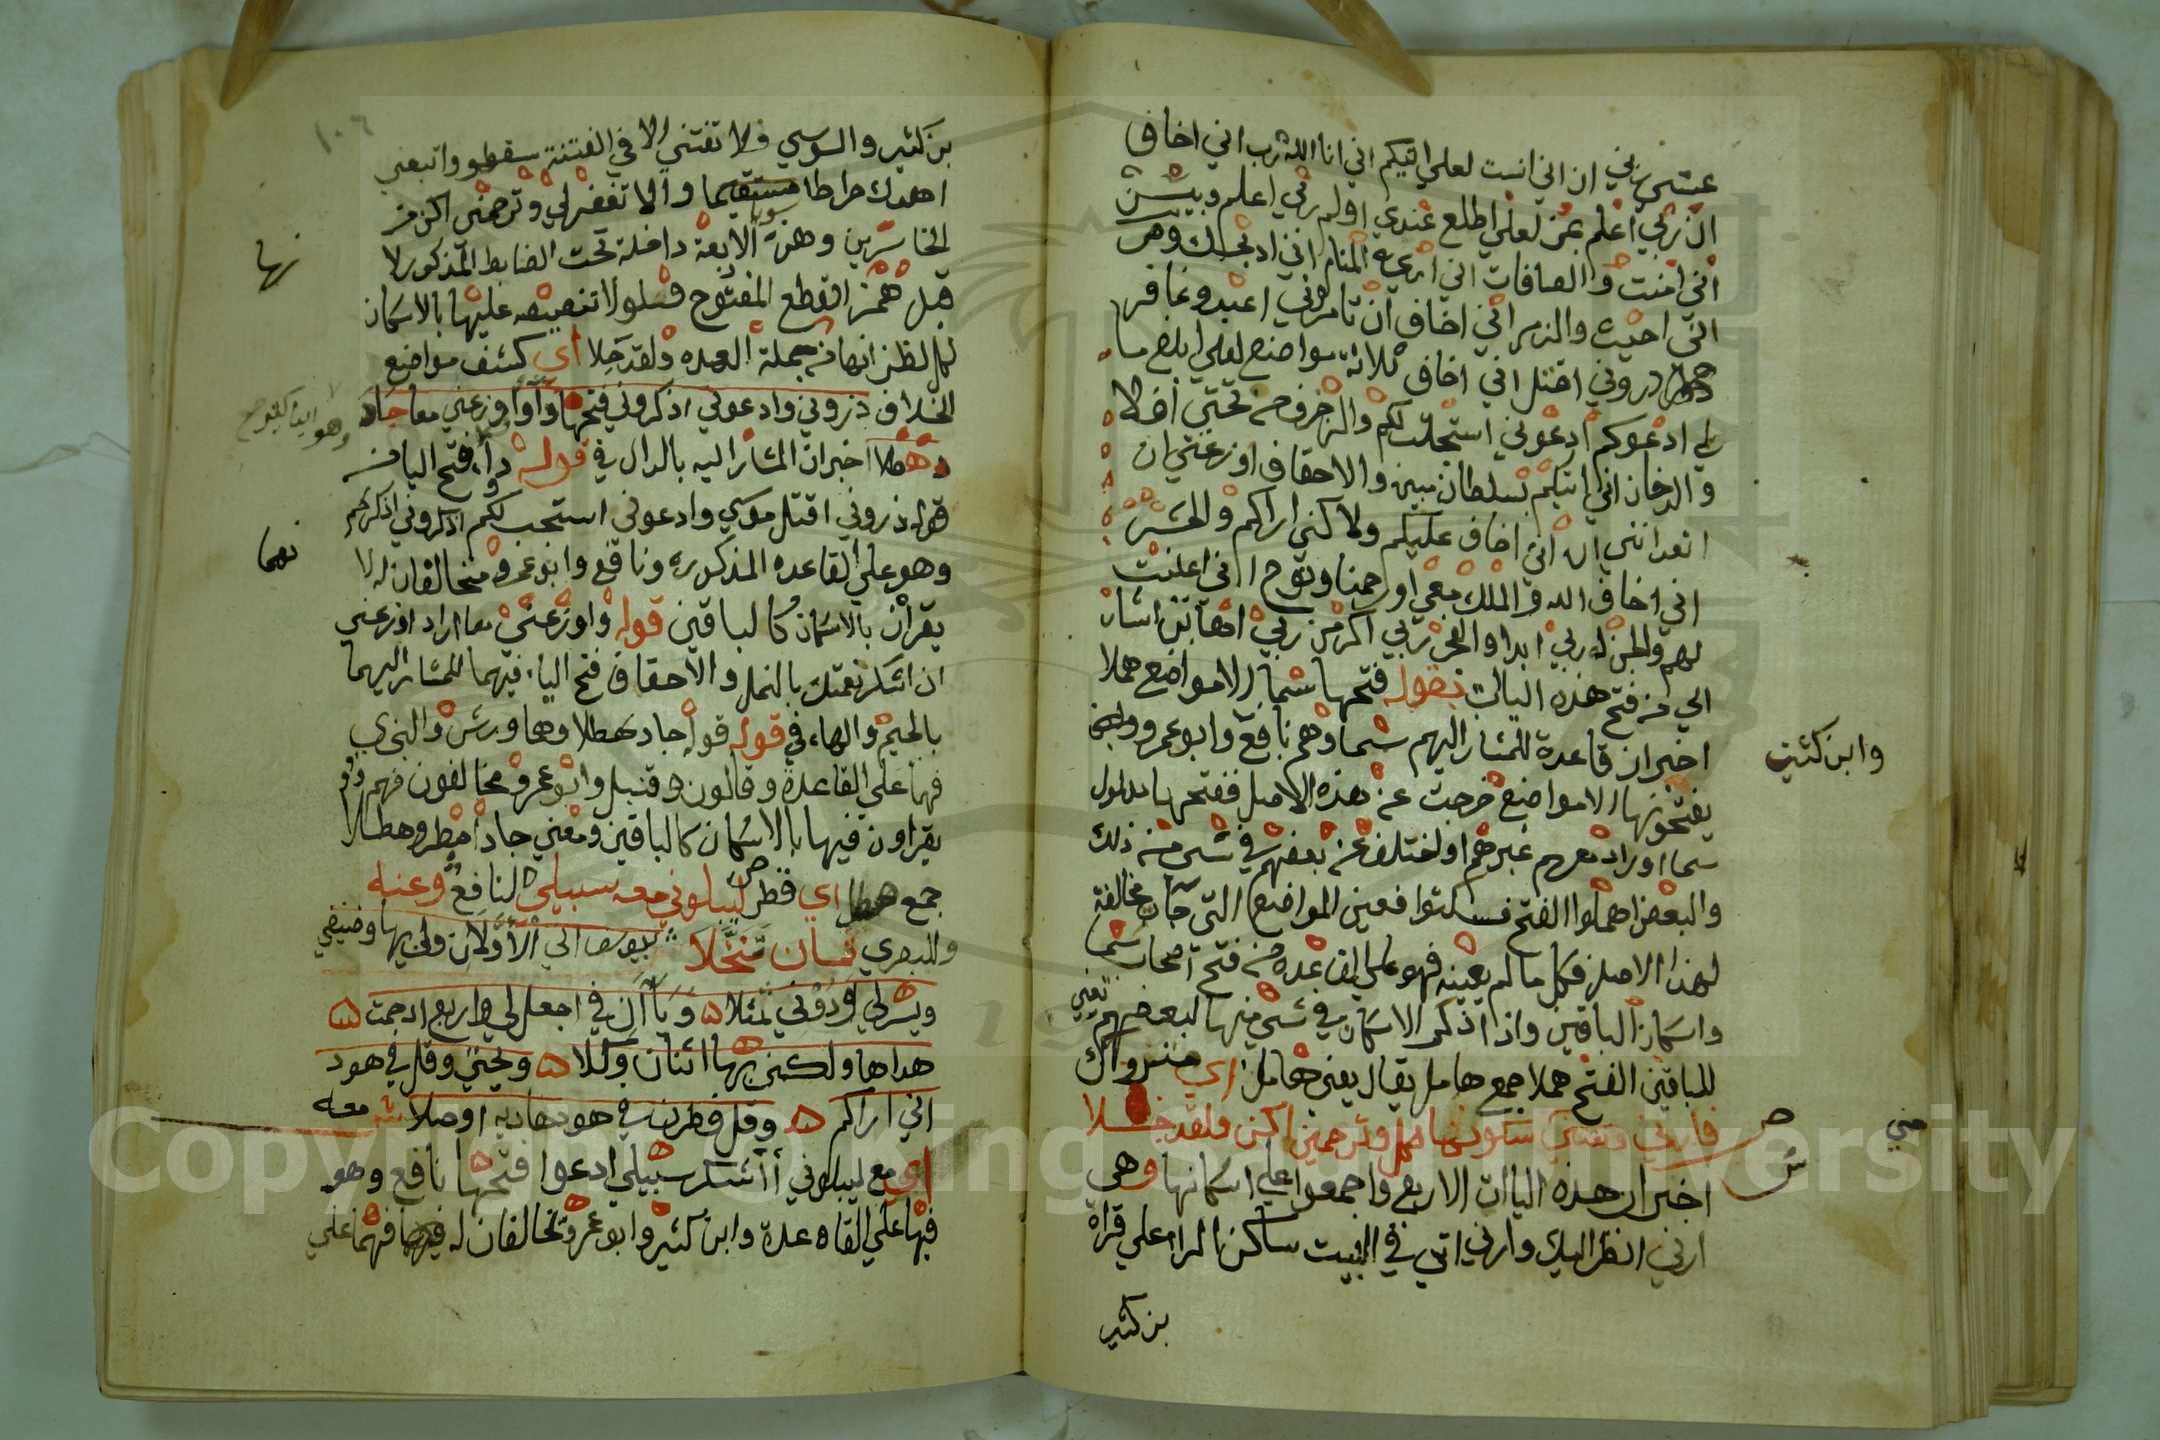 عشر نبي ان اني انست لعلي اتيكم اني انا الله رب اني اخاف
ان ربي اعلم بمن لعلي اطلع عندي اولم ربي اعلم وبيس
اني امنت والصافات اني اري في المنام اني اذبحك وص
اني احببت والزمر اني اخاف ان تامروني اعبد وغافر
ذروني اقتل اني اخاف ثلاثة مواضع لعلي ابلغ ما
لي ادعوكم ادعوني استجب لكم والزخرف من تحتي افلا
والدخان اني اتيكم بسلطان مبين والاحقاف اوزعني ان
اتعدانني ان اني اخاف عليكم ولاكني اراكم والحشر
اني اخاف الله والملك معي اورحمنا ونوح اني اعلنت
لهم والجن له ربي ابدا والفجر ربي اكرمن ربي اهانن اشار
الي من فتح هذه اليات بقوله فتحها سما الا مواضع هملا
اخبر ان قاعدة المشار اليهم بسما وهم نافع وابو عمرو
وابن كثير
يفتحونها الا مواضع خرجت عن هذه الاصل ففتحها مدلول
سما اوزاد معهم غيرهم او اختلف عن بعضهم في شي من ذلك
والبعض اهملوا الفتح فسكتوا فعين المواضع التي جات مخالفة
لهذا الاصل فكل ما لم يعينه فهو علي القاعدة من فتح اصحاب سما
واسكان الباقين واذا ذكر الاسكان في شي منها لبعضهم تعين
للباقين الفتح هملا جمع هامل يقال بعير هامل اي متروك
فارني وتفتني سكونها لكل وترحمني اكن ولقد جلا
اخبر ان هذه الياات الاربع واجمعوا علي اسكانها وهي
ارني انظر اليك وارني اتي في البيت ساكن الراء علي قراة
بن كثير
١٠٦
بن كثير والسوسي ولا تفتني الا في الفتنة سقطوا واتبعني
اهدك صراطا سويا والا تغفر لي وترحمني اكن من
الخاسرين وهذه الاربعة داخلة تحت الضابط المذكور لانها
قبل همز القطع المفتوح فلولا تنصيصه عليها بالاسكان
لكل لظن انها من جملة العده ولقد جلا اي كشف مواضع
الخلاف ذروني وادعوني اذكروني فتحها دوا واوزعني معا جاد
هطلا اخبر ان المشار اليه بالدال في قوله دوا فتح اليا من
قوله ذروني اقتل موسي وادعوني استجب لكم اذكروني اذكركم
وهو علي القاعده المذكوره ونافع وابو عمرو مخالفان له لانهما
يقران بالاسكان كالباقين قوله واوزعني معا اراد اوزعني
ان اشكر نعمتك بالنمل والاحقاف فتح الياء فيهما للمشار اليهما
بالجيم والهاء في قوله قوله جاد هطلا وهما ورش والبزي
فهما علي القاعدة وقالون وقنبل وابو عمرو مخالفون فهم
يقراون فيها بالاسكان كالباقين ومعني جاد امطر وهطلا
جمع هطل اي قطر ليبلوني معه سبيلي لنافع وعنه
وللبصري ثمان تنخلا بيوسف اني الأولان ولي بها وضيفي
ويسر لي ودوني تمثلا ه وياآن في اجعل لي واربع اذ حمت
هداها ولكني بها اثنان وكلا ه وتحتي وقل في هود
اني اراكم ه وقل فطرن في هود هاديه اوصلا معه
اي مع ليبلوني أأشكر سبيلي ادعوا فتحها نافع وهو
فيها علي القاعدة وابن كثير وابو عمرو مخالفان له فهما علي
Copyright © King Saud University